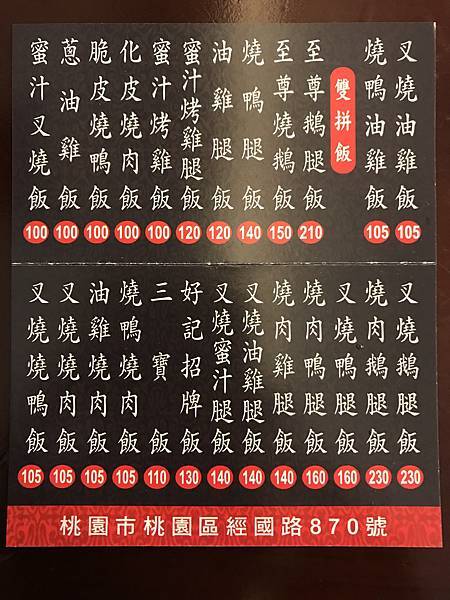 蜜汁叉燒飯
100
蔥油雞飯
100
脆皮燒鴨飯
100
化皮燒肉飯
100
蜜汁烤雞飯
100
蜜汁烤雞腿飯
120
油雞腿飯
120
燒鴨腿飯
140
至尊燒鵝飯
150
至尊鵝腿飯
210
雙拼飯
燒鴨油雞飯
105
叉燒油雞飯
105
叉燒燒鴨飯
105
叉燒燒肉飯
105
油雞燒肉飯
105
燒鴨燒肉飯
105
三寶飯
110
好記招牌飯
130
叉燒蜜汁腿飯
140
叉燒油雞腿飯
140
燒肉雞腿飯
140
燒肉鴨腿飯
160
叉燒鴨腿飯
160
燒肉鵝腿飯
230
叉燒鵝腿飯
230
桃園市桃園區經國路870號